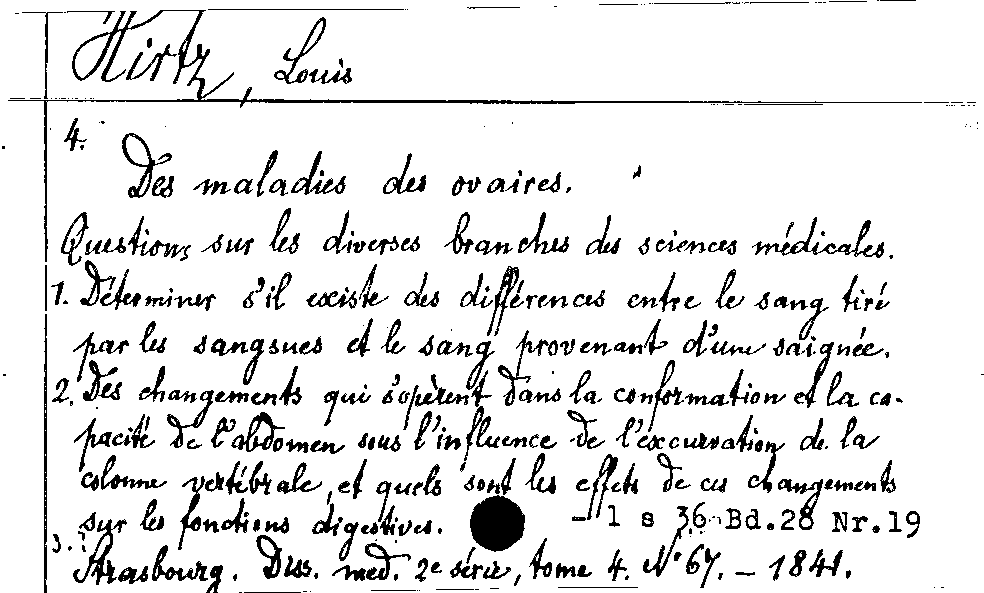 Hirtz, Louis
4.
Des maladies des ovaires.
Questions sur les diverses branches des sciences médicales.
1. Déterminer s'il existe des différences entre le sang tiré
par les sangsues et le sang provenant d'une saignée.
2. Des changements qui s'opèrent dans la conformation et la ca-
pacité de l'abdomen sous l'influence de l'excurvation de la
colonne vertébrale, et quels sont les effets de ces changements
sur les fonctions digestives. - 1 s 36 Bd.28 Nr.19
3.
Strasbourg. Diss. med. 2e série, tome 4. N° 67. - 1841.